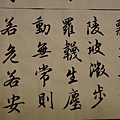 陵波微步
羅韈生塵
動無常則
若危若安